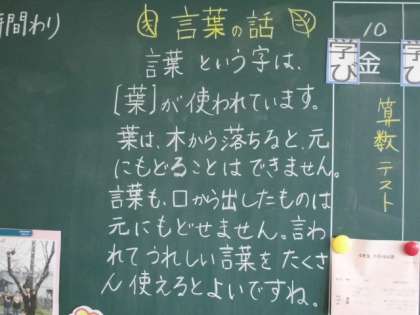 時間わり
言葉の話
言葉という字は、
[葉]が使われています。
葉は、木から落ちると、元
にもどることはできません。
言葉も、口から出したものは
元にもどせません。言わ
れてうれしい言葉をたくさ
ん使えるとよいですね。
10
学び
金
学び
算数テスト